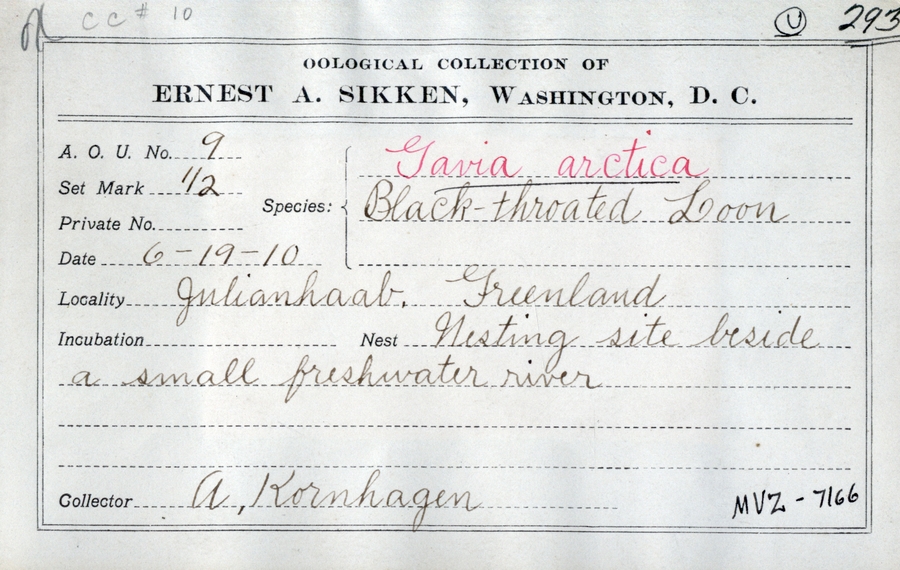 CC# 10
U 293
OOLOGICAL COLLECTION OF
ERNEST A. SIKKEN, WASHINGTON, D. C.
A. O. U. No. 9
Set Mark 1/2
Private No.
Date 6-19-10
Species: Gavia arctica
Black-throated Loon
Locality Julianhaab, Greenland
Incubation Nest Nesting site beside
a small freshwater river
Collector A. Kornhagen
MVZ-7166